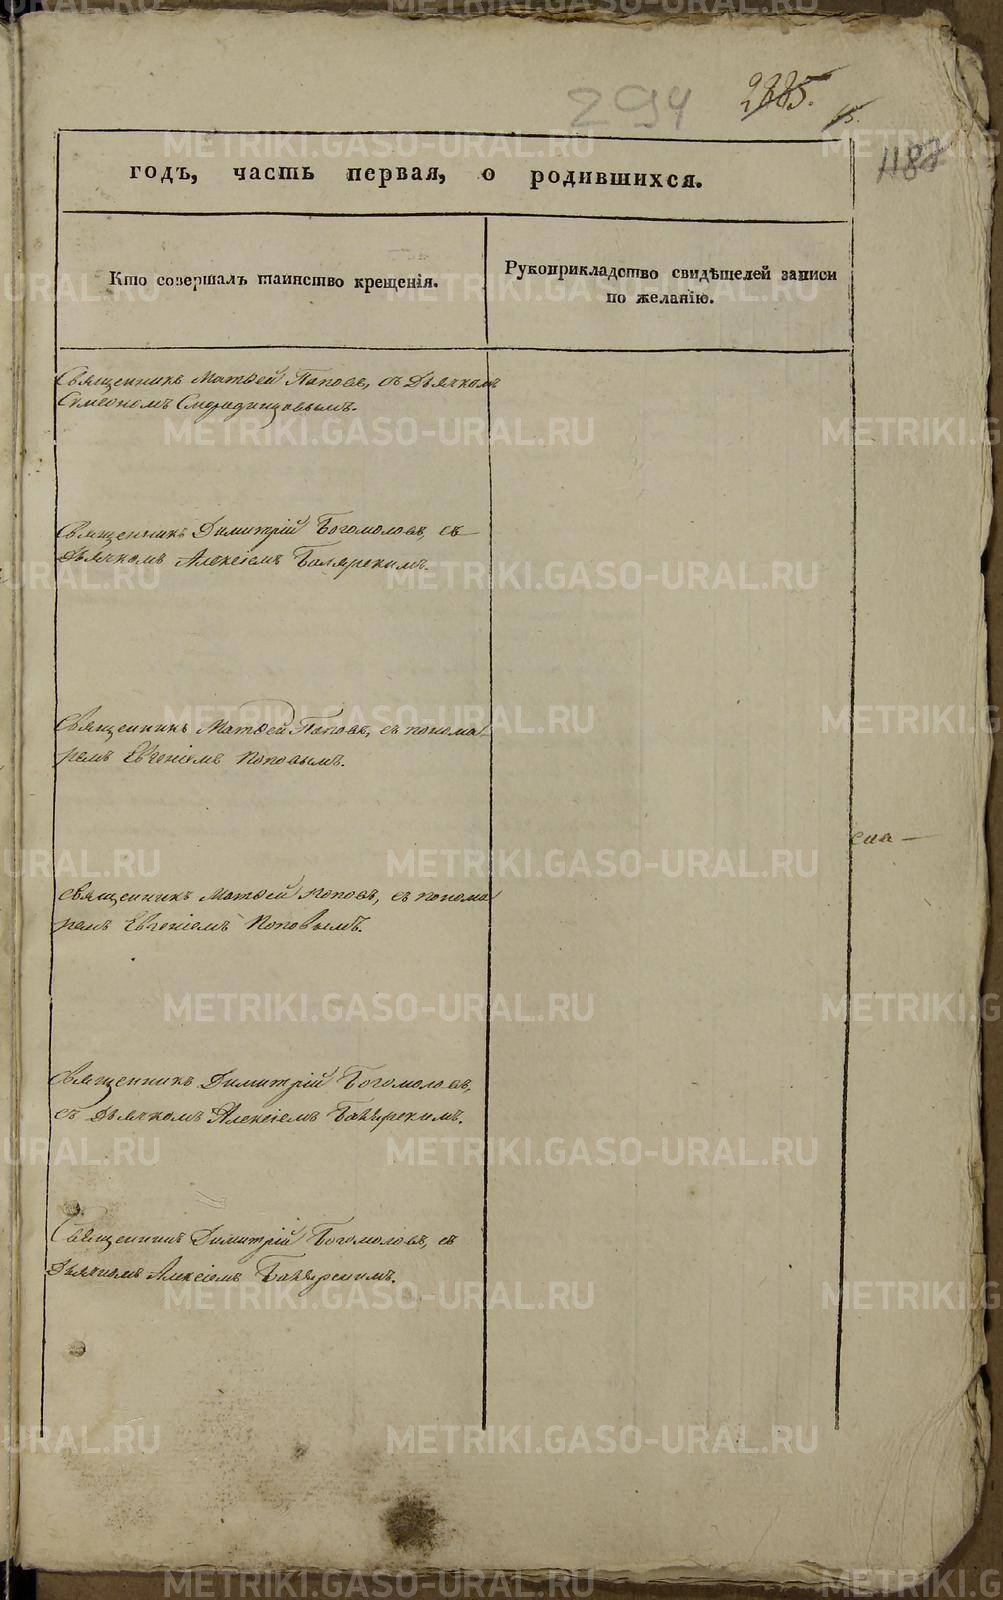 294
2885.
15.
1187
годъ, часть первая, о родившихся.
Кто совершалъ таинство крещенія.
Рукоприкладство свидѣтелей записи
по желанію.
Священникъ Матѳей Поповъ, съ Дьячкомъ
Симеономъ Смородинцовымъ.
Священникъ Димитрій Богомоловъ, съ
Дьячкомъ Алексіемъ
Священникъ Матѳей Поповъ, съ понома-
ремъ Евгеніемъ Поповымъ.
сна —
Священникъ Матѳей Поповъ, съ понома
ремъ Евгеніемъ Поповымъ.
Священникъ Димитрій Богомоловъ,
съ Дьячкомъ Алексіемъ
Священникъ Димитрій Богомоловъ, съ
Дьячкомъ Алексіемъ
METRIKI.GASO-URAL.RU